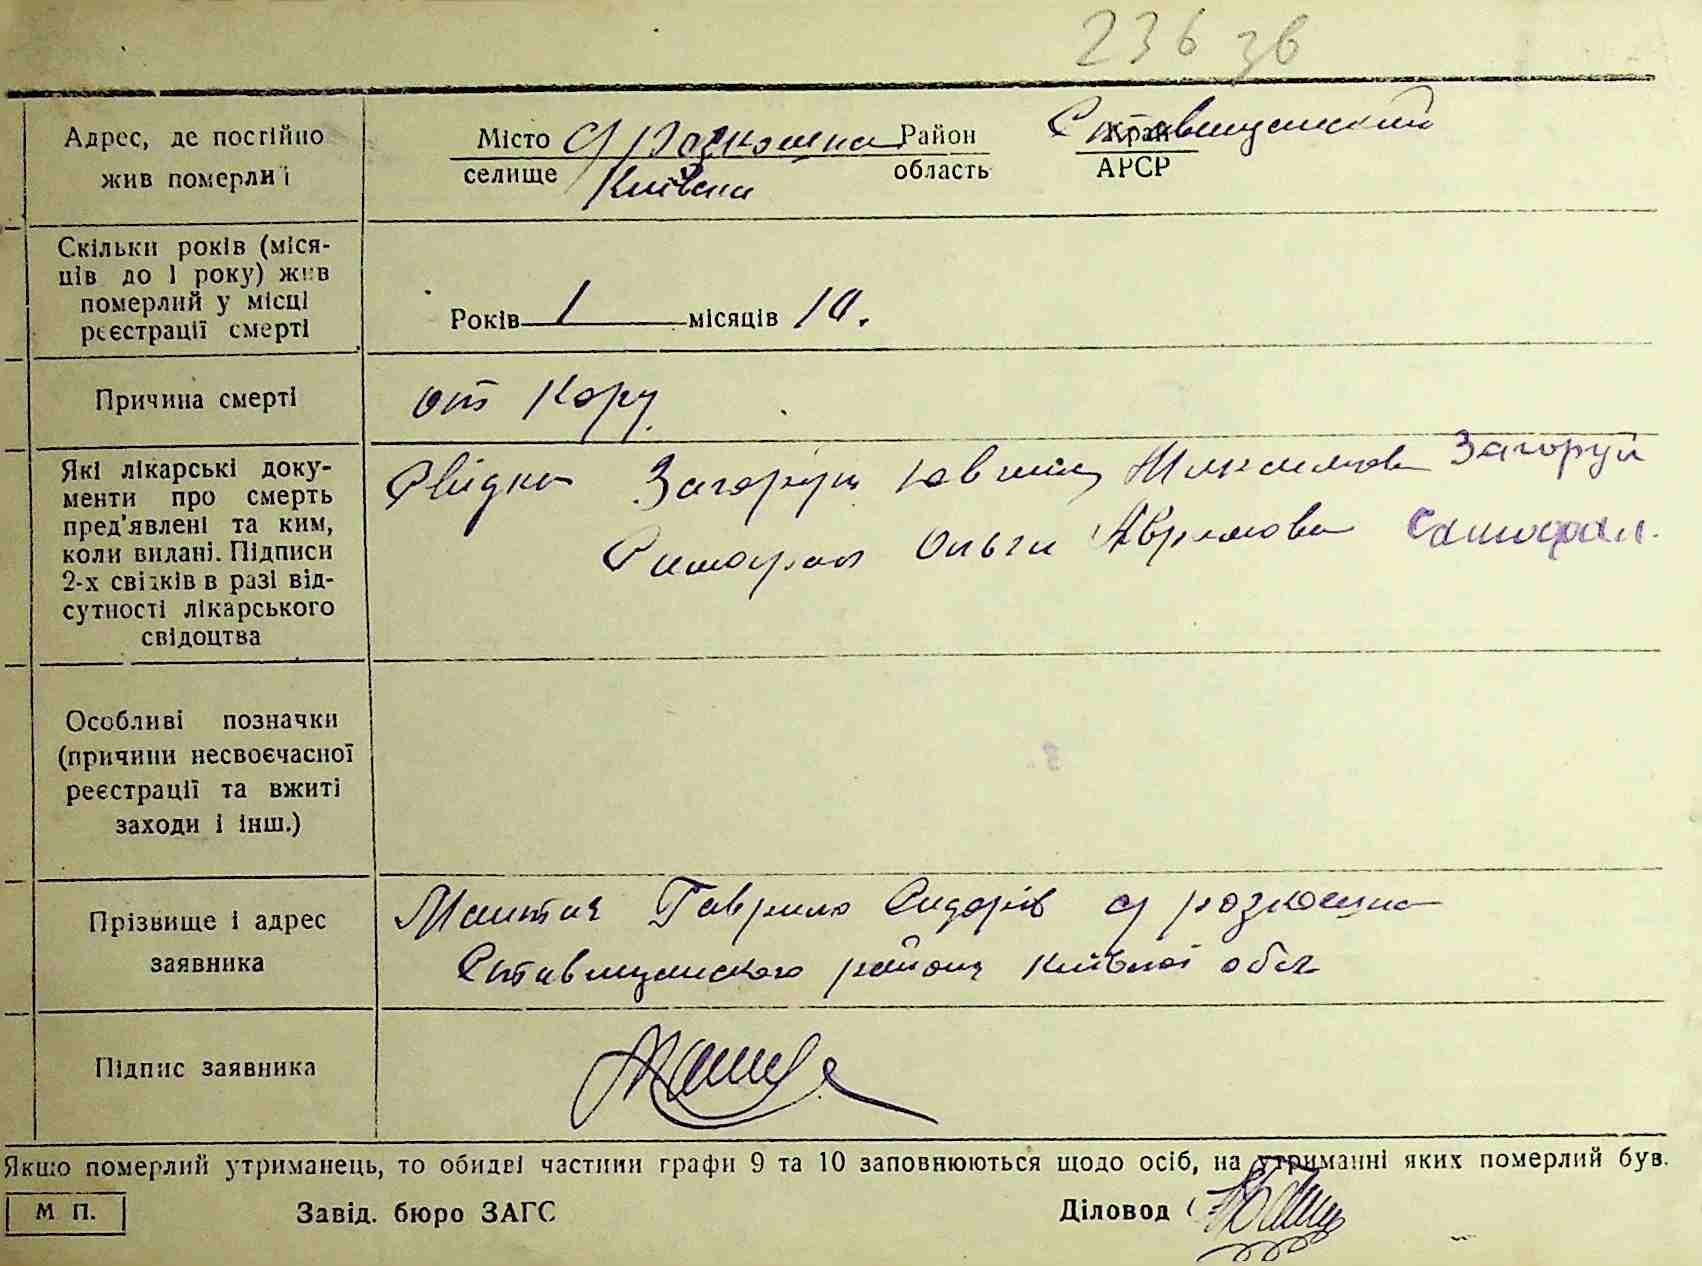 236 зв
Адрес, де постійно жив померлий
Місто с/ Розкошна Район Ставищанский Край
селище Київска область АРСР
Скільки років (міся-
ців до 1 року) жив
померлий у місці
реєстрації смерті
Років 1 місяців 10.
Причина смерті
от Кору.
Які лікарські доку-
менти про смерть
пред'явлені та ким,
коли видані. Підписи
2-х свідків в разі від-
сутності лікарського
свідоцтва
Свідки Загоруй Максимова Загоруй
Ольги Аврамова
Особливі позначки
(причини несвоєчасної
реєстрації та вжиті
заходи і інш.)
Прізвище і адрес
заявника
Гаврило Сидорів с/ розкошна
Ставищанского района Київскої обл
Підпис заявника
Якщо померлий утриманець, то обидві частини графи 9 та 10 заповнюються щодо осіб, на утриманні яких померлий був.
М П. Завід. бюро ЗАГС Діловод